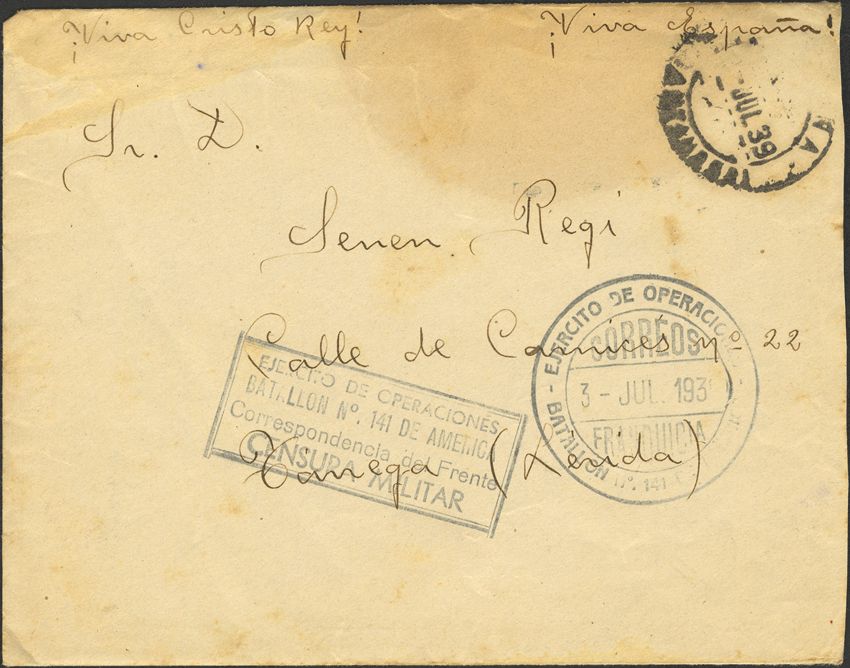 ¡Viva Cristo Rey! ¡Viva España!
JUL. 39
Sr. D.
Senen Regi
Calle de Carnicés nº 22
Tárrega (Lérida)
EJERCITO DE OPERACIONES
BATALLON Nº. 141 DE AMERICA
Correspondencia del Frente
CENSURA MILITAR
- EJERCITO DE
CORREOS
3 - JUL. 193
FRANQUICIA
BATALLON Nº. 141